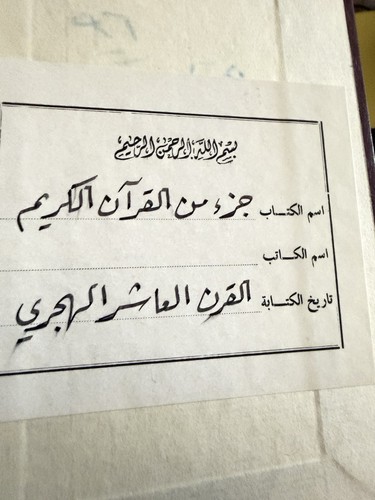 بسم الله الرحمن الرحيم
اسم الكتاب جزء من القرآن الكريم
اسم الكاتب
تاريخ الكتابة القرن العاشر الهجري